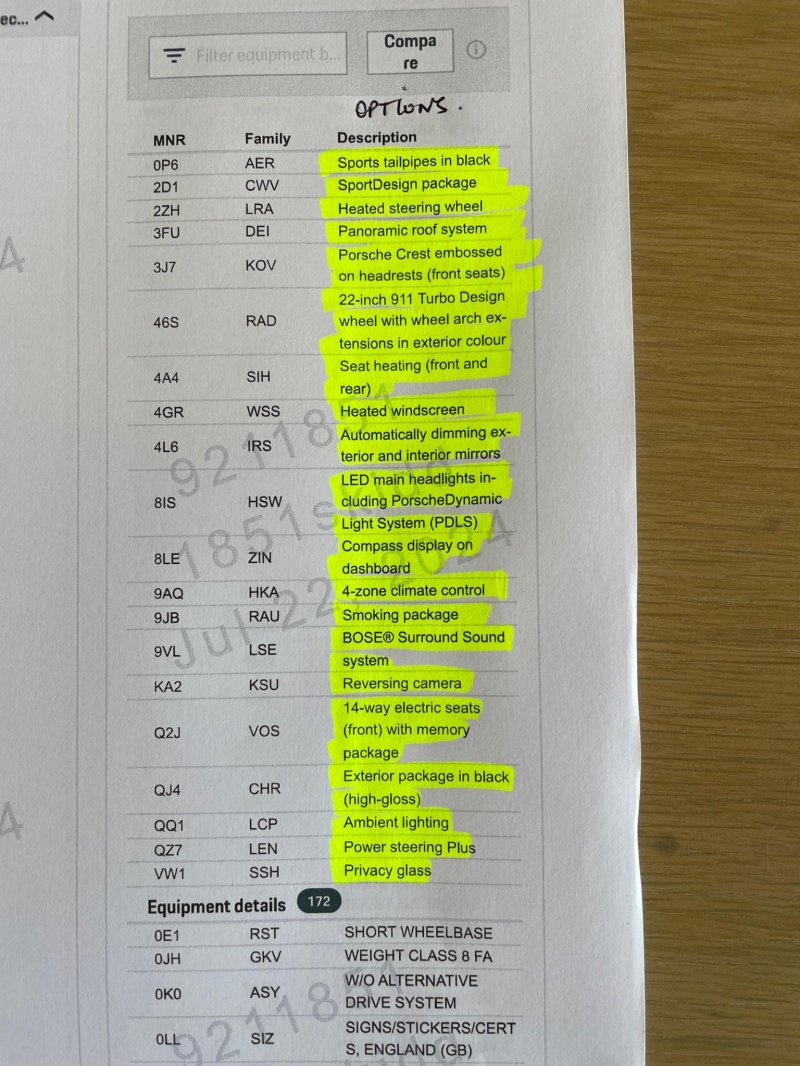 ec...
Filter equipment b...
Compa
re
OPTIONS.
MNR Family Description
0P6 AER Sports tailpipes in black
2D1 CWV SportDesign package
2ZH LRA Heated steering wheel
3FU DEI Panoramic roof system
3J7 KOV Porsche Crest embossed
on headrests (front seats)
46S RAD 22-inch 911 Turbo Design
wheel with wheel arch ex-
tensions in exterior colour
4A4 SIH Seat heating (front and
rear)
4GR WSS Heated windscreen
4L6 IRS Automatically dimming ex-
terior and interior mirrors
8IS HSW LED main headlights in-
cluding PorscheDynamic
Light System (PDLS)
8LE ZIN Compass display on
dashboard
9AQ HKA 4-zone climate control
9JB RAU Smoking package
9VL LSE BOSE® Surround Sound
system
KA2 KSU Reversing camera
Q2J VOS 14-way electric seats
(front) with memory
package
QJ4 CHR Exterior package in black
(high-gloss)
QQ1 LCP Ambient lighting
QZ7 LEN Power steering Plus
VW1 SSH Privacy glass
Equipment details 172
0E1 RST SHORT WHEELBASE
0JH GKV WEIGHT CLASS 8 FA
0K0 ASY W/O ALTERNATIVE
DRIVE SYSTEM
0LL SIZ SIGNS/STICKERS/CERT
S, ENGLAND (GB)
9211851
Jul 22, 2024
9211851
4
4